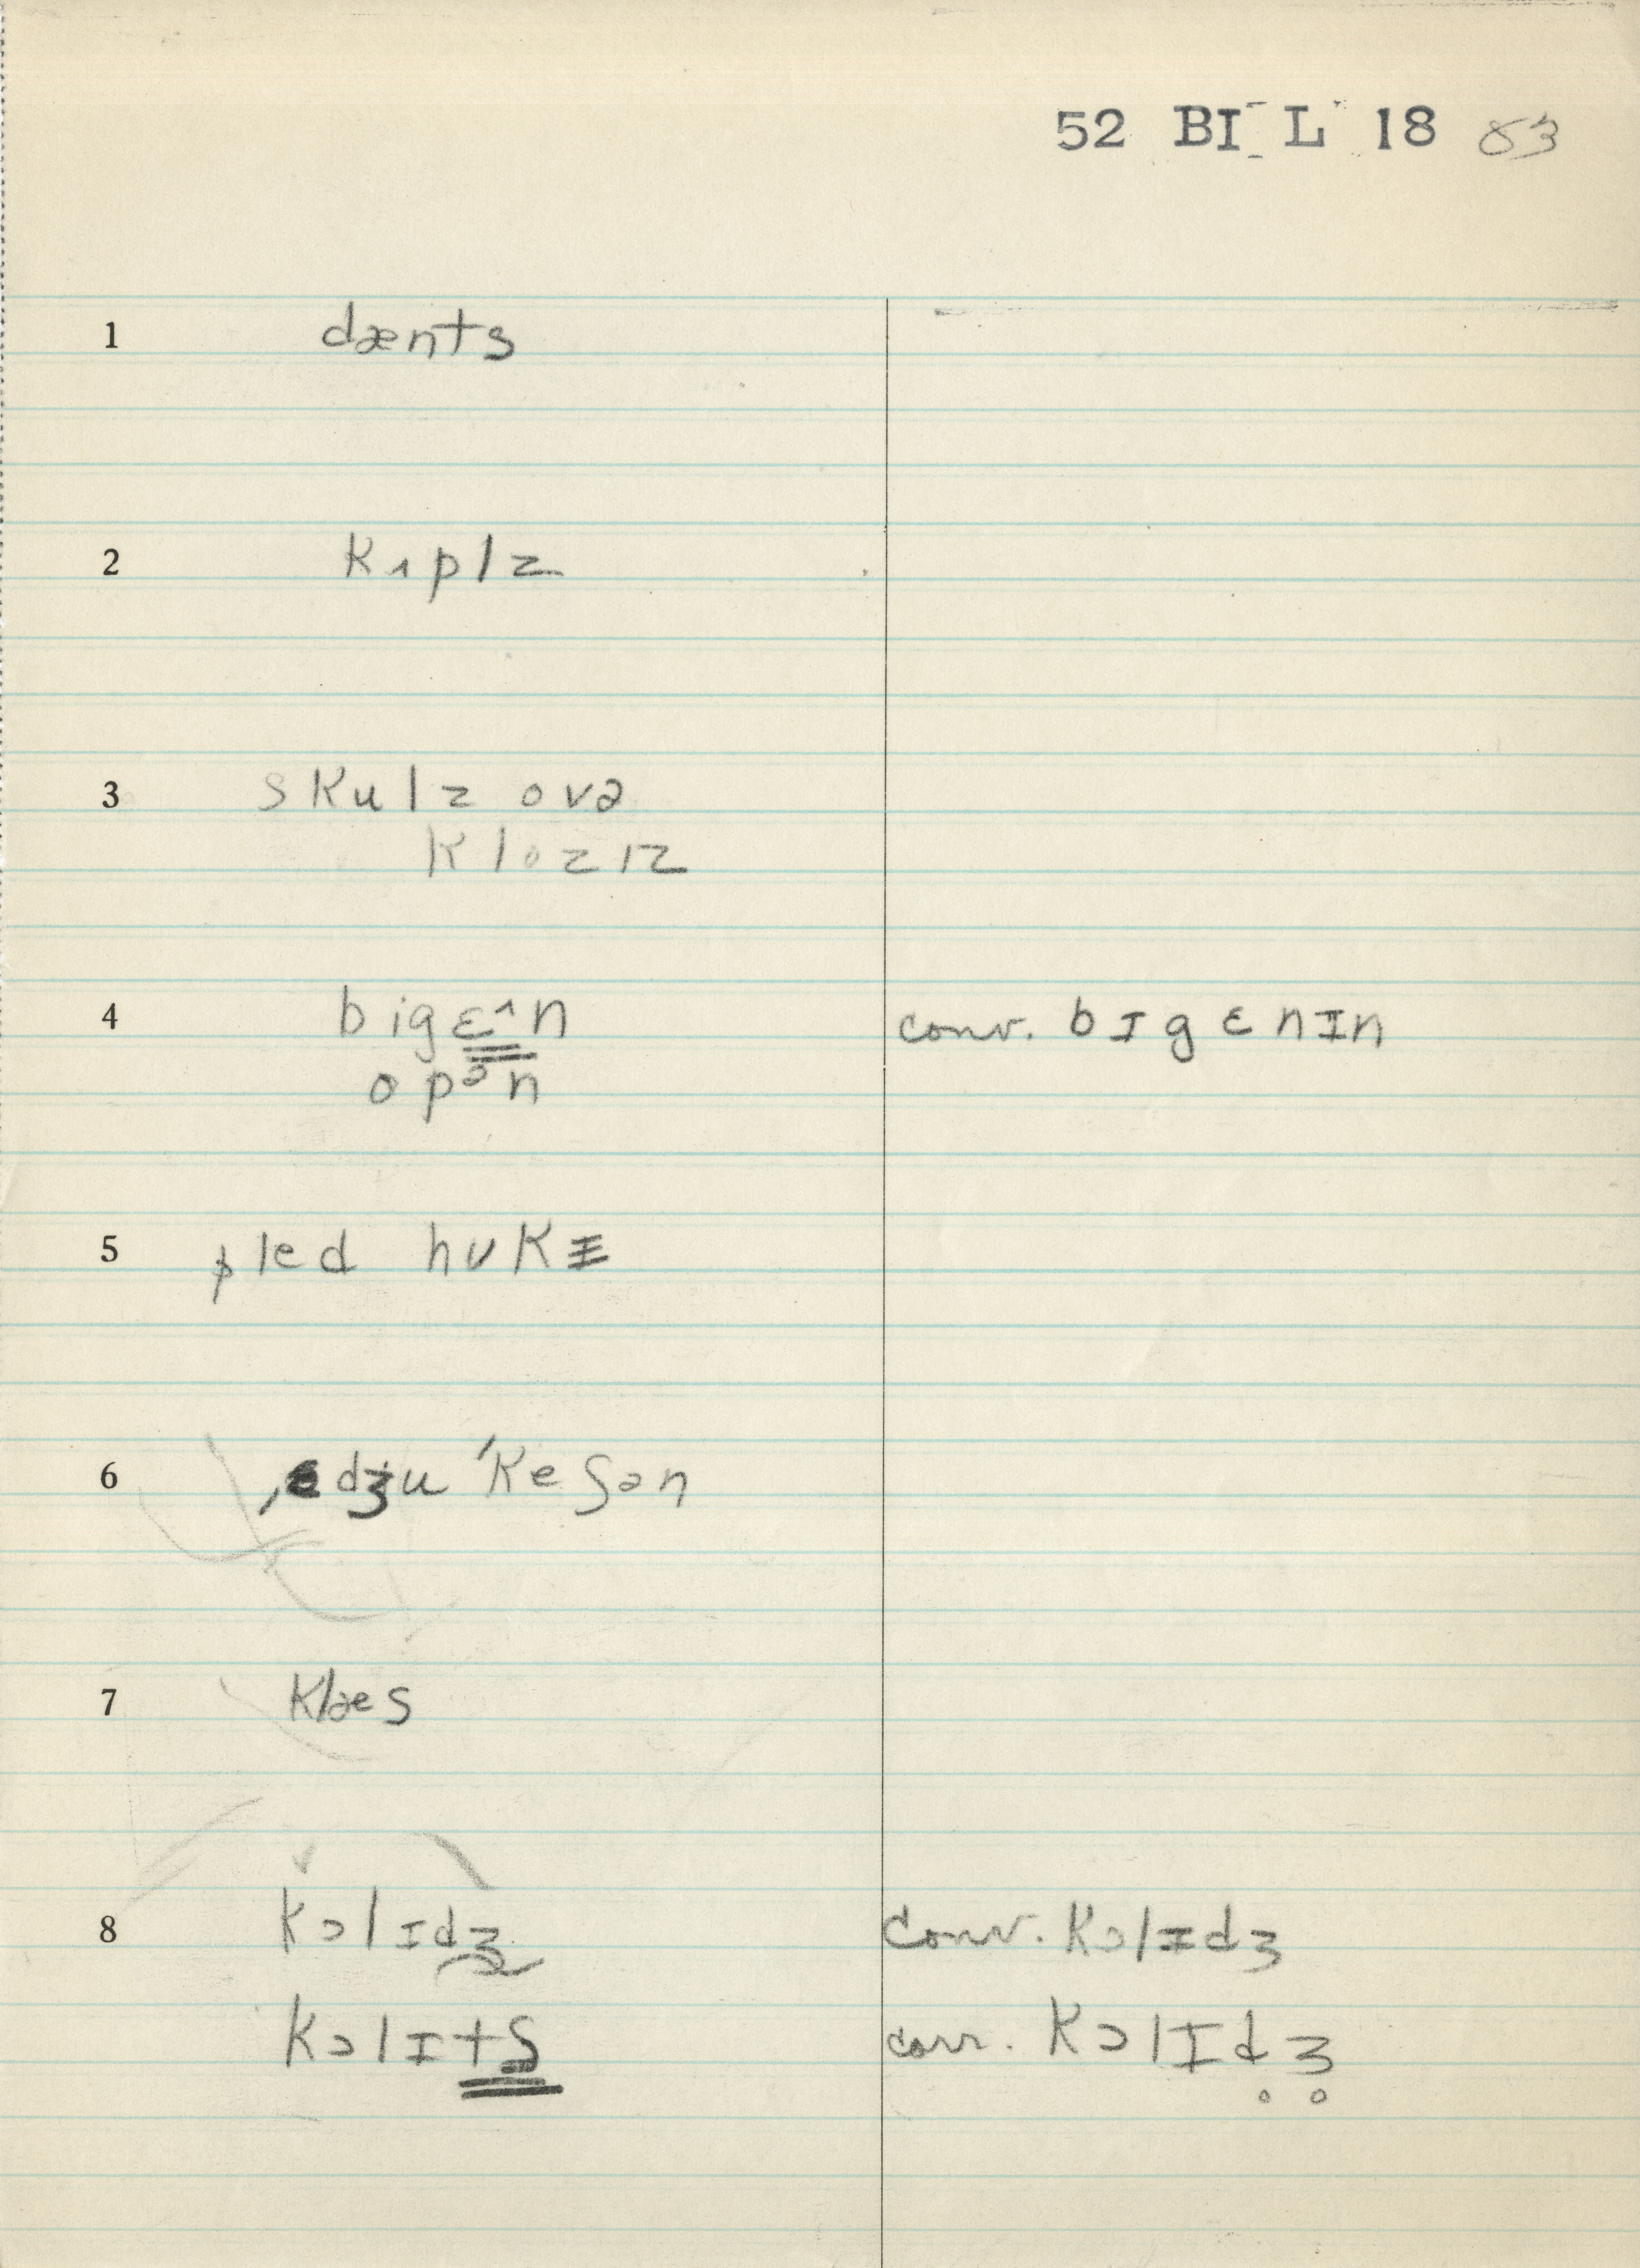 52 BI L 18 83
1 dænts
2 kʌplz
3 skulz ovə
klozɪz
4 bigɛ^n conv. bɪgɛnɪn
opᵊn
5 pled hʊkɪ
6 ˌɛdʒuˈkeʃən
7 klæs
8 kɔlɪdʒ conv. kɔlɪdʒ
kɔlɪtʃ corr. kɔlɪd̥ʒ̊